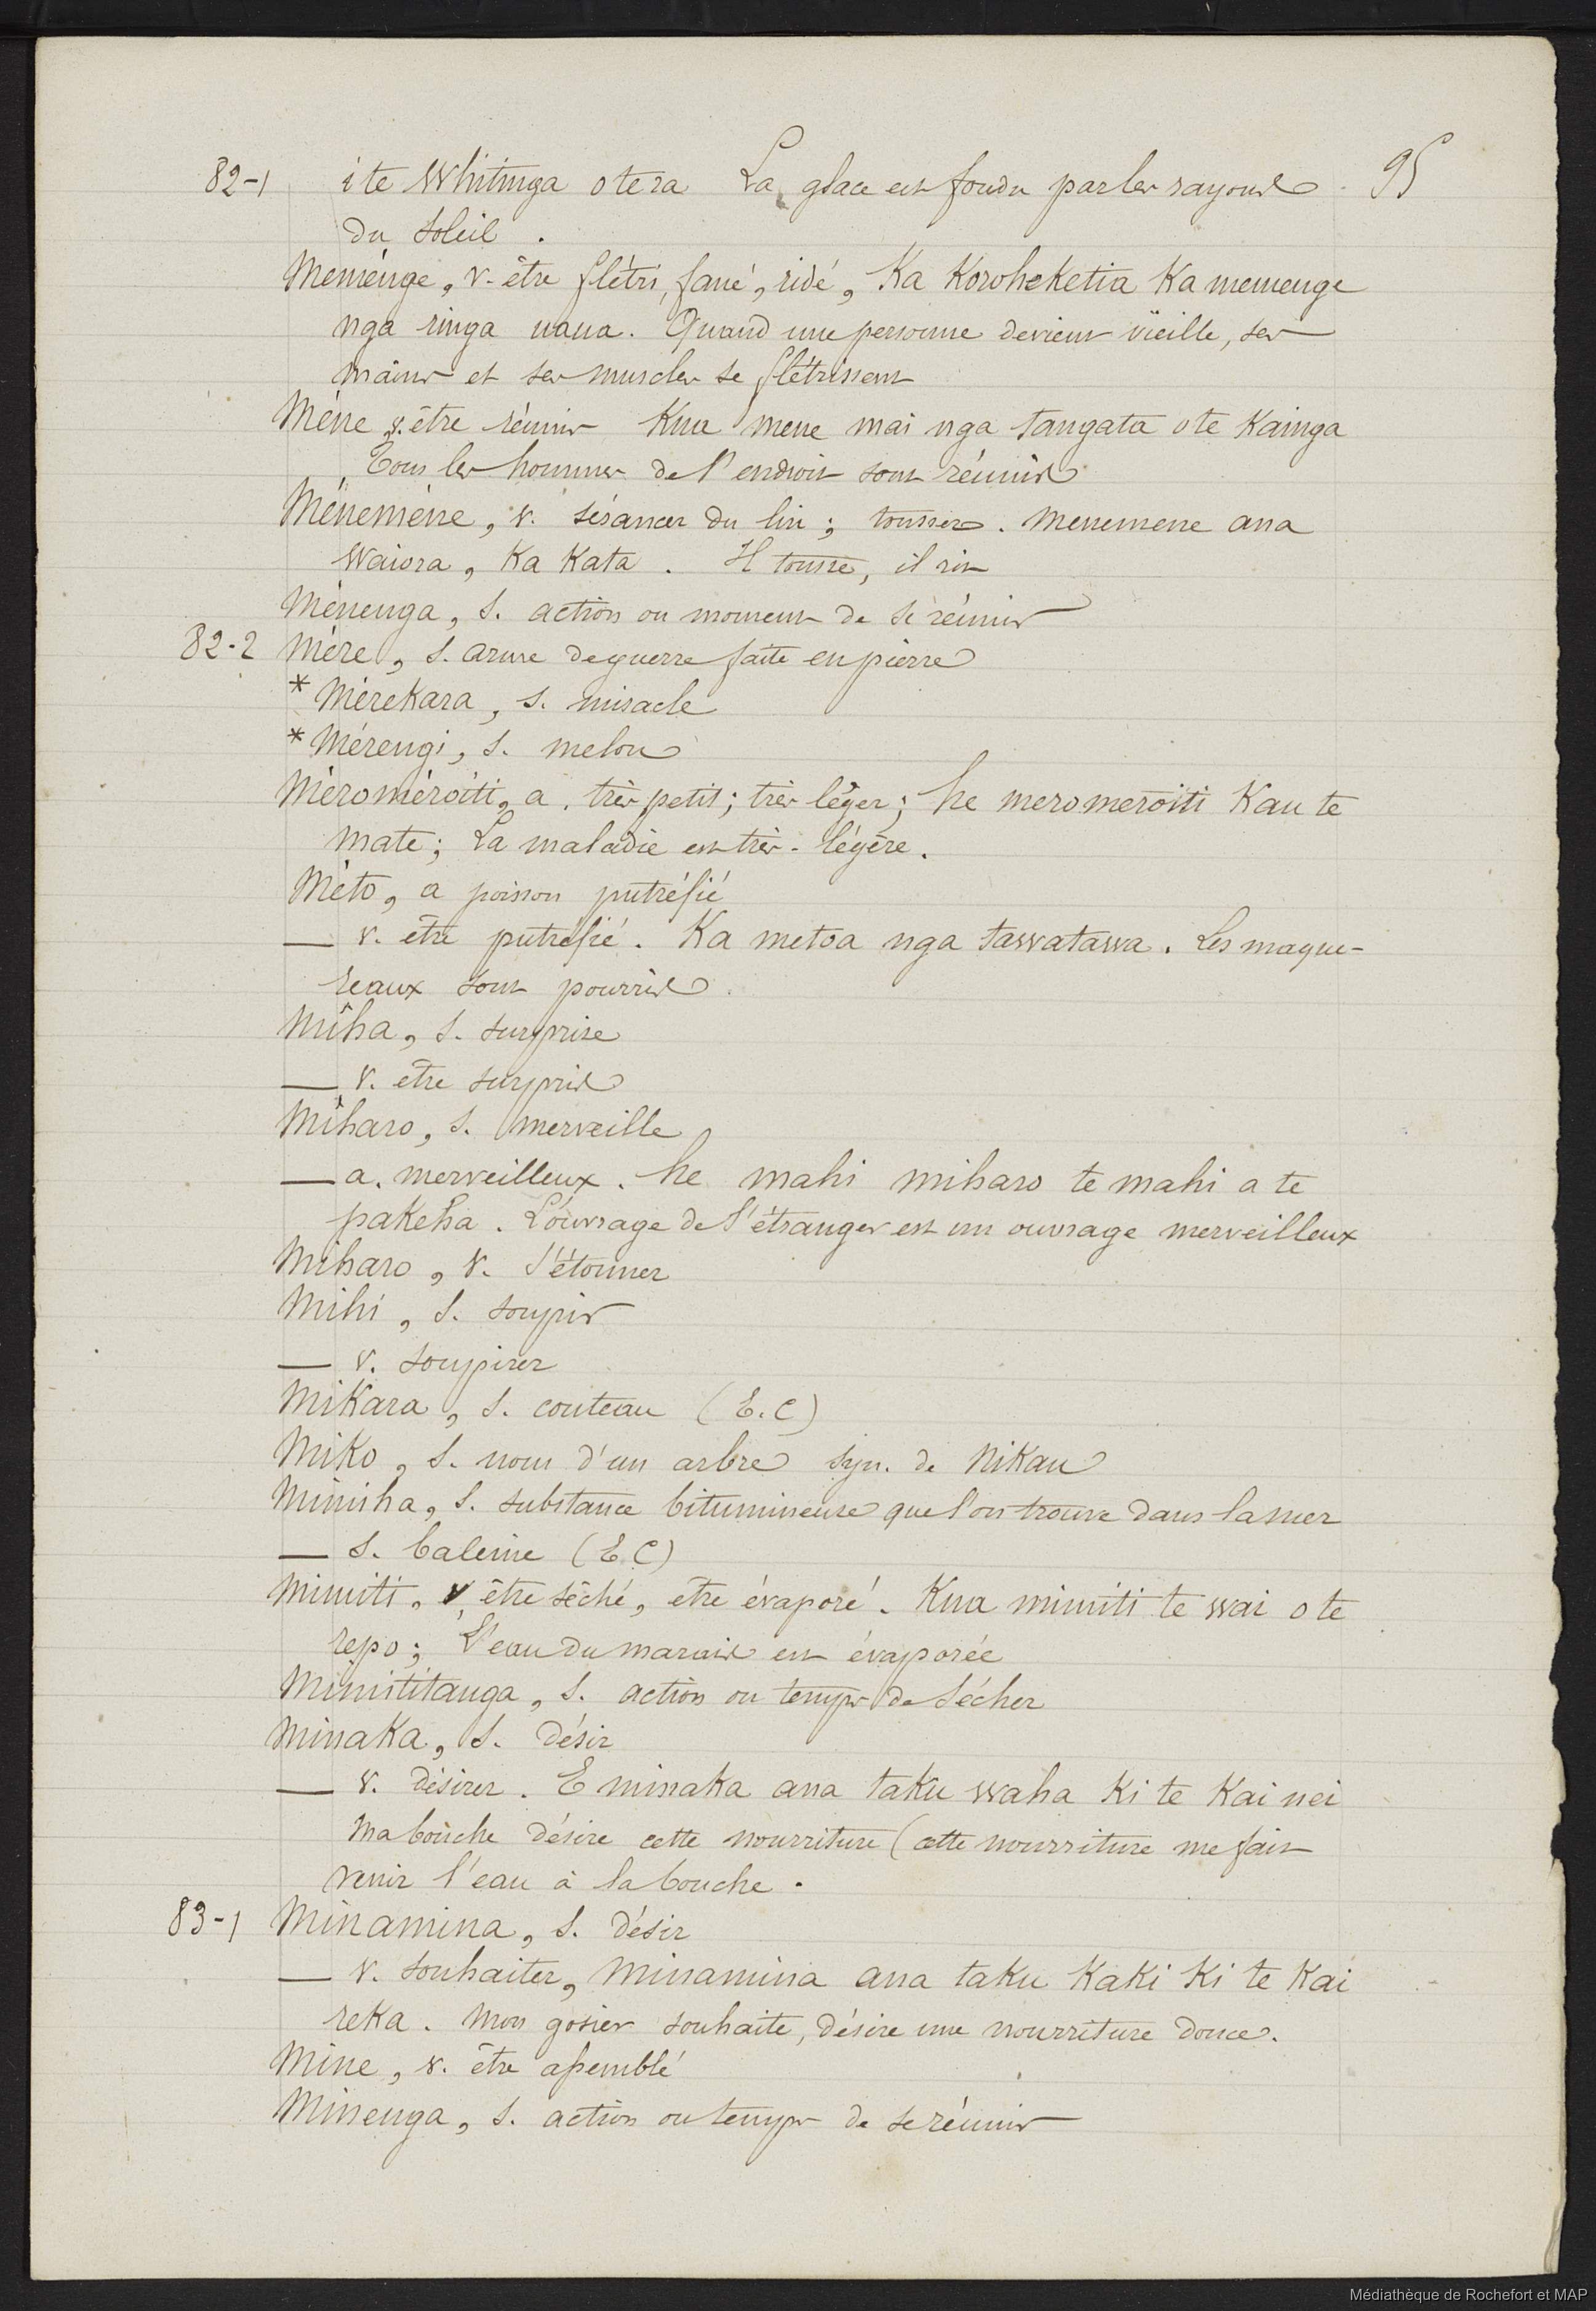 82-1 i te Whitinga o te ra La glace est fondu par les rayons 95
du soleil.
Meménge, v. être flétri, fané, ridé, Ka Koroheketia Ka memenge
nga ringa uaua. Quand une personne devient vieille, ses
mains et ses muscles se flétrissent
Méne, v. être réunis Kua mene mai nga tangata o te Kainga
Tous les hommes de l'endroit sont réunis
Méneméne, v. sérancer du lin; tousser. Menemene ana
Waiora, Ka Kata. Il tousse, il rit
Ménenga, s. action ou moment de se réunir
82-2 Mére, s. arme de guerre faite en pierre
* Mérekara, s. miracle
* Mérengi, s. melon
Méroméroiti, a. très petit; très léger; he meromeroiti Kau te
mate; La maladie est très-légère.
Méto, a poisson putréfié
— v. être putréfié. Ka metoa nga tawatawa. Les maque-
reaux sont pourris.
Mîha, s. surprise
— v. être surpris
Mîharo, s. merveille
— a. merveilleux. he mahi miharo te mahi a te
pakeha. L'ouvrage de l'étranger est un ouvrage merveilleux
Miharo, v. s'étonner
Mihi, s. soupir
— v. soupirer
Mikara, s. couteau (E.C)
Miko, s. nom d'un arbre syn. de Nikau
Mimiha, s. substance bitumineuse que l'on trouve dans la mer
— s. baleine (E.C)
Mimiti, v, être séché, être évaporé. Kua mimiti te wai o te
repo; L'eau du marais est évaporée
Mimititanga, s. action ou temps de sécher
Minaka, s. désir
— v. désirer. E minaka ana taku waha Ki te Kai nei
Ma bouche désire cette nourriture (cette nourriture me fait
venir l'eau à la bouche.
83-1 Minamina, s. désir
— v. souhaiter, Minamina ana taku Kaki Ki te Kai
reka. Mon gosier souhaite, désire une nourriture douce.
Mine, v. être assemblé
Minenga, s. action ou temps de se réunir
Médiathèque de Rochefort et MAP